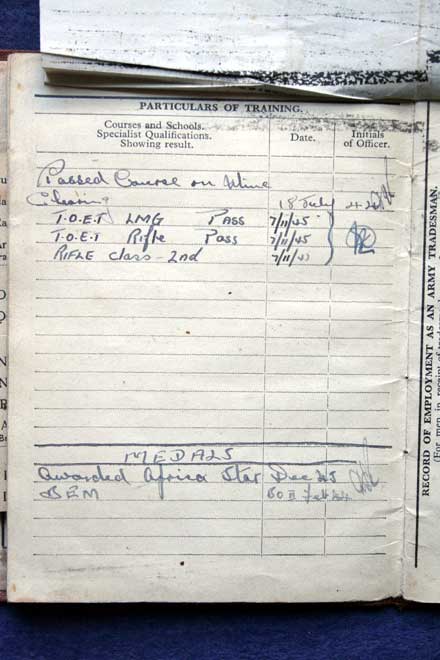 PARTICULARS OF TRAINING.
Courses and Schools.
Specialist Qualifications.
Showing result.
Date.
Initials
of Officer.
Passed Course on Mine
Clearing 18 July
T.O.E.T LMG PASS 7/11/45
T.O.E.T Rifle Pass 7/11/45
RIFLE Class - 2nd 7/11/45
MEDALS
Awarded Africa Star Dec
BEM
RECORD OF EMPLOYMENT AS AN ARMY TRADESMAN.